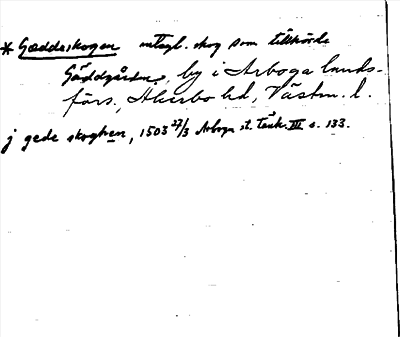 * Gæddeskogen mtagl. skog som tillhörde
Gäddgården, by i Arboga lands-
förs., Åkerbo hd, Västm. l.
j gede skoghen, 1503 27/3 Arboga st. tänk. III s. 133.